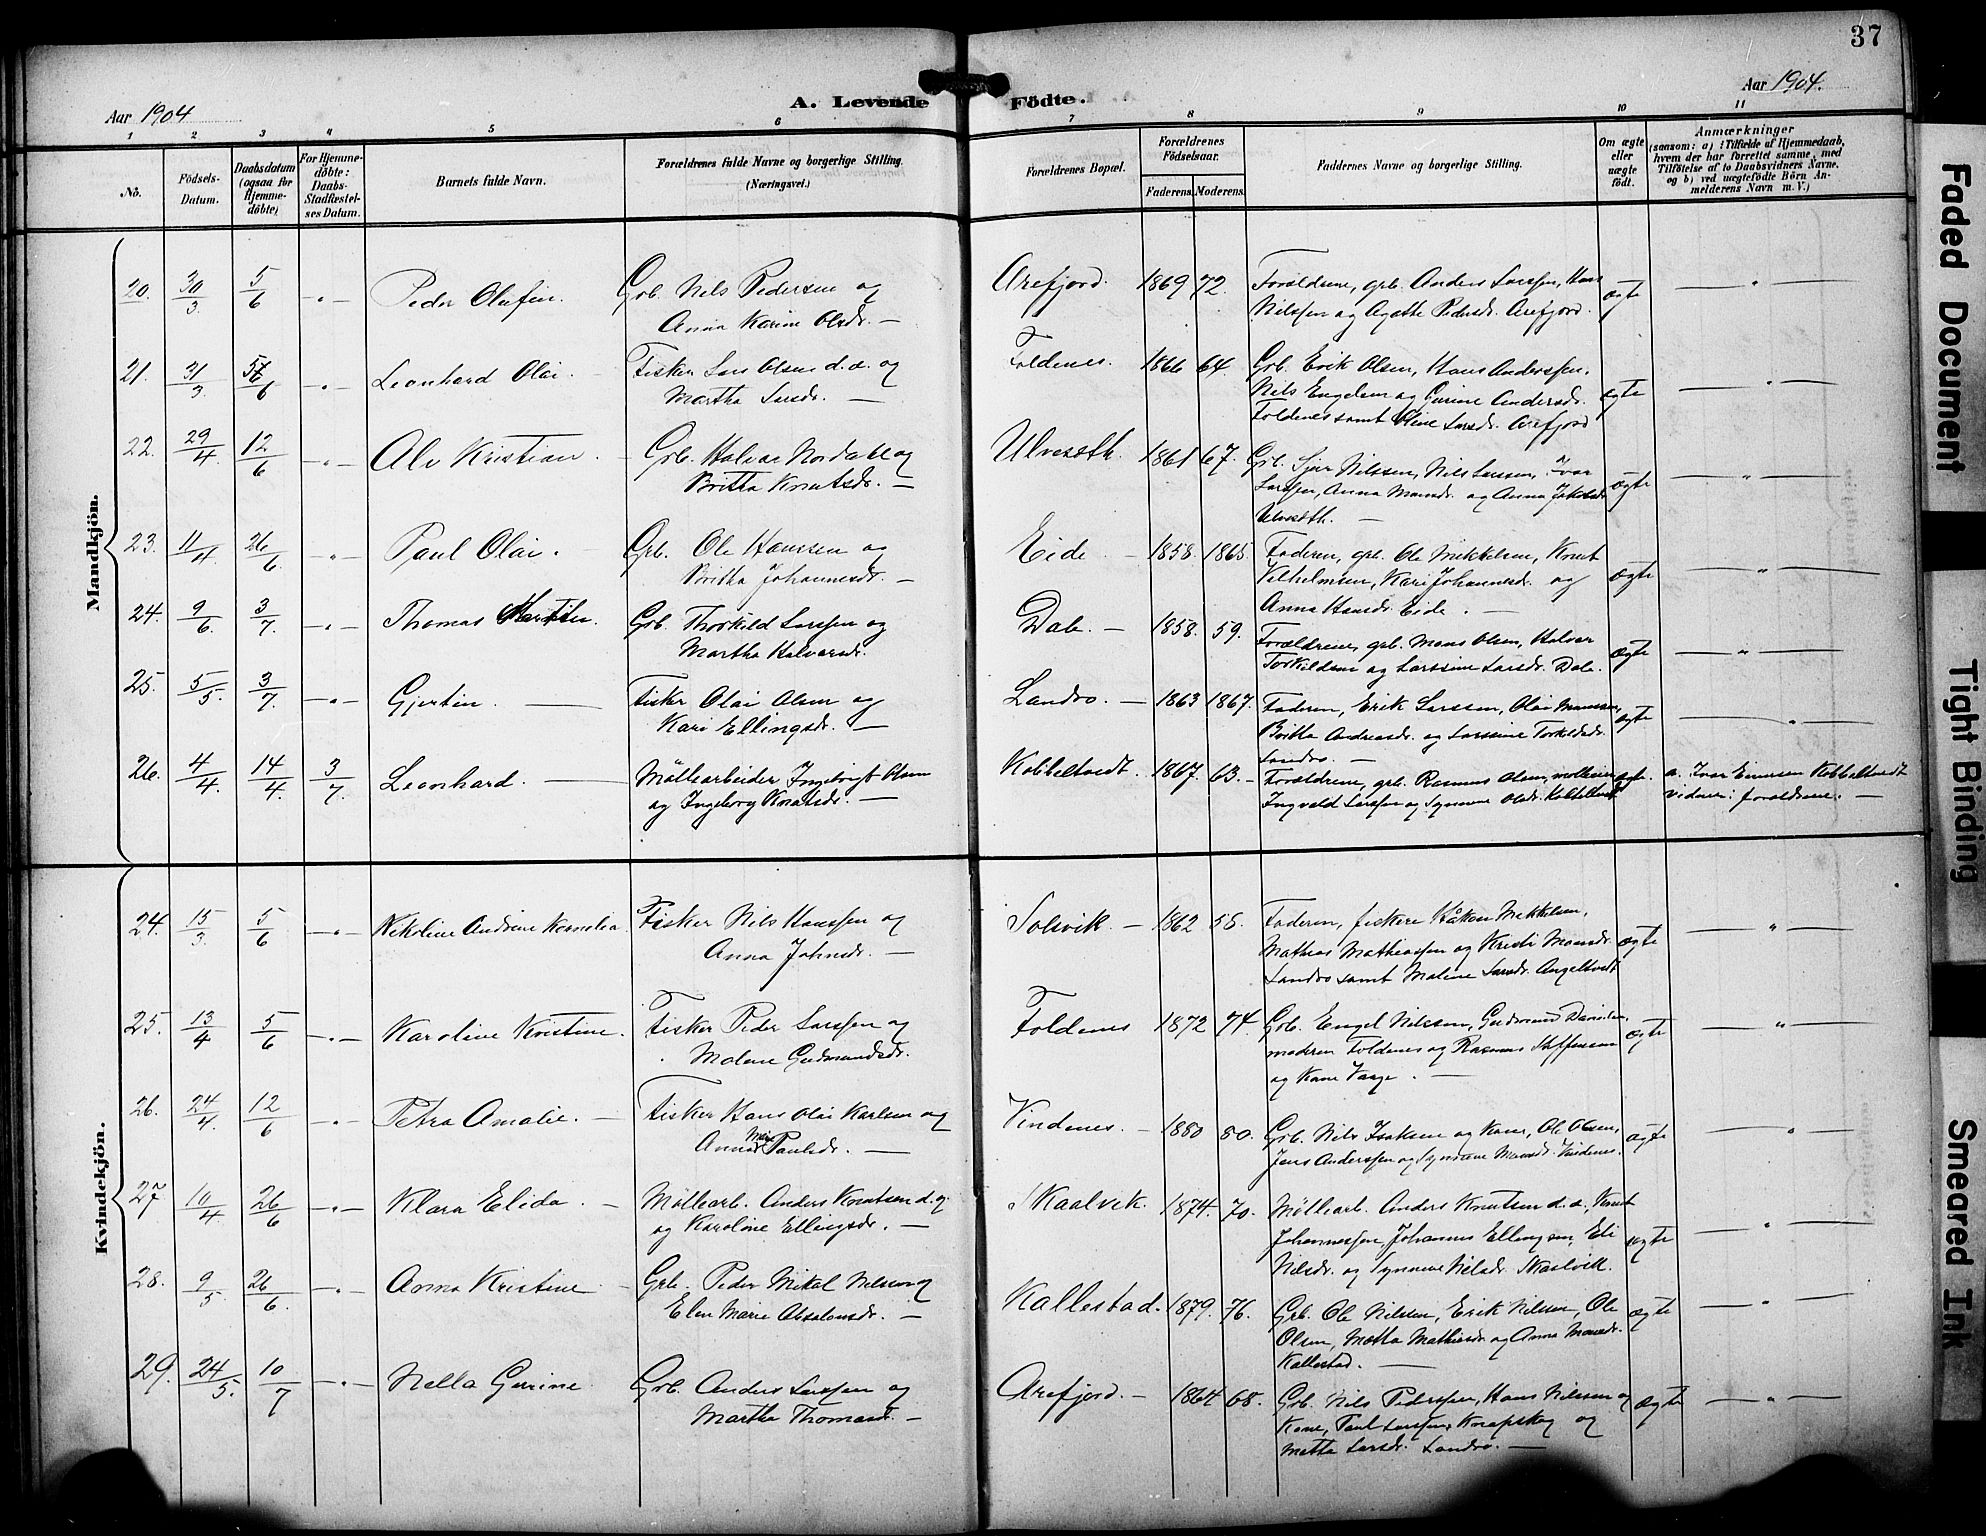 37
Aar 1904
A. Levende Födte.
Aar 1904.
1 2 3 4 5 6 7 8 9 10 11
No.
Födsels-
Datum.
Daabsdatum
(ogsaa for
Hjemme-
döbte)
For Hjemme-
döbte:
Daabs-
Stadfæstel-
ses Datum.
Barnets fulde Navn.
Forældrenes fulde Navne og borgerlige Stilling.
(Næringsvei.)
Forældrenes Bopæl.
Forældrenes
Födselsaar.
Faderens. Moderens.
Faddernes Navne og borgerlige Stilling.
Om ægte
eller
uægte
födt.
Anmærkninger
(saasom: a) i Tilfælde af Hjemmedaab,
hvem der har forrettet samme, med
Tilföielse af to Daabsvidners Navne.
og b) ved uægtefödte Börn An-
melderens Navn m. V.)
Mandkjön.
20. 30/3. 5/6 -"- Peder Olufin. Grb. Nils Pedersen og
Anna Karine Olsdr. —
Arefjord. 1869 72. Forældrene, grb. Anders Larssen, Hans
Nilssen og Agathe Pedersdr. Arefjord. ægte — " —
21. 31/3. 5/6 -"- Leonhard Olai. Fisker Lars Olsen d.a. og
Martha Larsdr. —
Foldenes. 1866 64. Grb. Erik Olsen, Hans Anderssen,
Nils Engelsen og Gurine Andersdr.
Foldenes samt Oline Larsdr. Arefjord ægte — " —
22. 29/4. 12/6 -"- Alv Kristian. Grb. Halvar Nordahl og
Britha Knutsdr. —
Ulveseth. 1861 67. Grb. Sjur Nilssen, Nils Larssen, Ivar
Larssen, Anna Monsdr. og Anna Jakobsdr.
Ulveseth. — ægte — " —
23. 11/4. 26/6. -"- Paul Olai. Grb. Ole Hanssen og
Britha Johannesdr. —
Eide — 1858. 1865. Faderen, grb. Ole Mikkelsen, Knut
Vilhelmsen, Kari Johannesdr. og
Anna Hansdr. Eide. — ægte — " —
24. 9/6. 3/7. -"- Thomas Martin. Grb. Thorkild Larssen og
Martha Halvorsdr.
Dale. — 1858. 59. Forældrene, grb. Mons Olsen, Halvar
Torkildsen og Larssine Larsdr. Dale. ægte — " —
25. 5/5. 3/7. -"- Gjertin. — Fisker Olai Olsen og
Kari Ellingsdr. —
Landro — 1863 1867. Faderen, Erik Larssen, Olai Monssen,
Britha Andreasdr. og Larssine Torkildsdr.
Landro. — ægte — " —
26. 4/4. 14/4. 3/7. Leonhard. — Møllearbeider Ingebrigt Olsen
og Ingeborg Knutsdr. —
Kobbeltvedt. 1867. 63. Forældrene, grb. Rasmus Olsen,
Ingvald Larssen og Synneve Olsdr. Kobbeltvedt ægte. a. Ivar Einarsen Kobbeltvedt
vidner: forældrene. —
Kvindekjön.
24. 15/3. 5/6 -"- Nikoline Andrine Kornelia. Fisker Nils Hanssen og
Anna Johnsdr. —
Solsvik. — 1862 58. Faderen, fiskere Håkon Mikkelsen,
Mathias Mathiassen og Kristi Monsdr.
Landro samt Malene Larsdr. Angeltvedt ægte — " —
25. 13/4 5/6 -"- Karoline Kristine. Fisker Peder Larssen og
Malene Gudmundsdr.
Foldenes 1872 74. Grb. Engel Nilssen, Gudmund Davidsen,
moderen Foldenes og Rasmus Steffensen
og Kone Vaage. — ægte — " —
26. 24/4. 12/6 -"- Petra Amalie. — Fisker Hans Olai Karlsen og
Anna Mari Paulsdr. —
Vindenes. — 1880 80. Grb. Nils Isaksen og Kone, Ole Olsen,
Jens Anderssen og Synneve Monsdr. Vindenes. ægte — " —
27 10/4 26/6 -"- Klara Elida. — Møllearb. Anders Knutsen d.y.
og Karoline Ellingsdr. —
Skaalvik. 1874. 70. Møllearb. Anders Knutsen d.æ., Knut
Johannessen, Johannes Ellingsen, Eli
Nilsdr. og Synneve Nilsdr. Skaalvik. ægte — " —
28. 9/5 26/6. -"- Anna Kristine — Grb. Peder Mikal Nilssen og
Elen Marie Absalonsdr. —
Kallestad. 1879. 76. Grb. Ole Nilssen, Erik Nilssen, Ole
Olsen, Metta Mathiasdr. og Anna Monsdr.
Kallestad. — ægte — " —
29. 24/5. 10/7 -"- Nella Gurine Grb. Anders Larssen og
Martha Thomasdr. —
Arefjord. — 1864 68. Grb. Nils Pederssen, Hans Nilssen og
Kone, Paul Larssen, Knapskog og
Metta Larsdr. Landro. — ægte — " —
Faded Document
Tight Binding
Smeared Ink